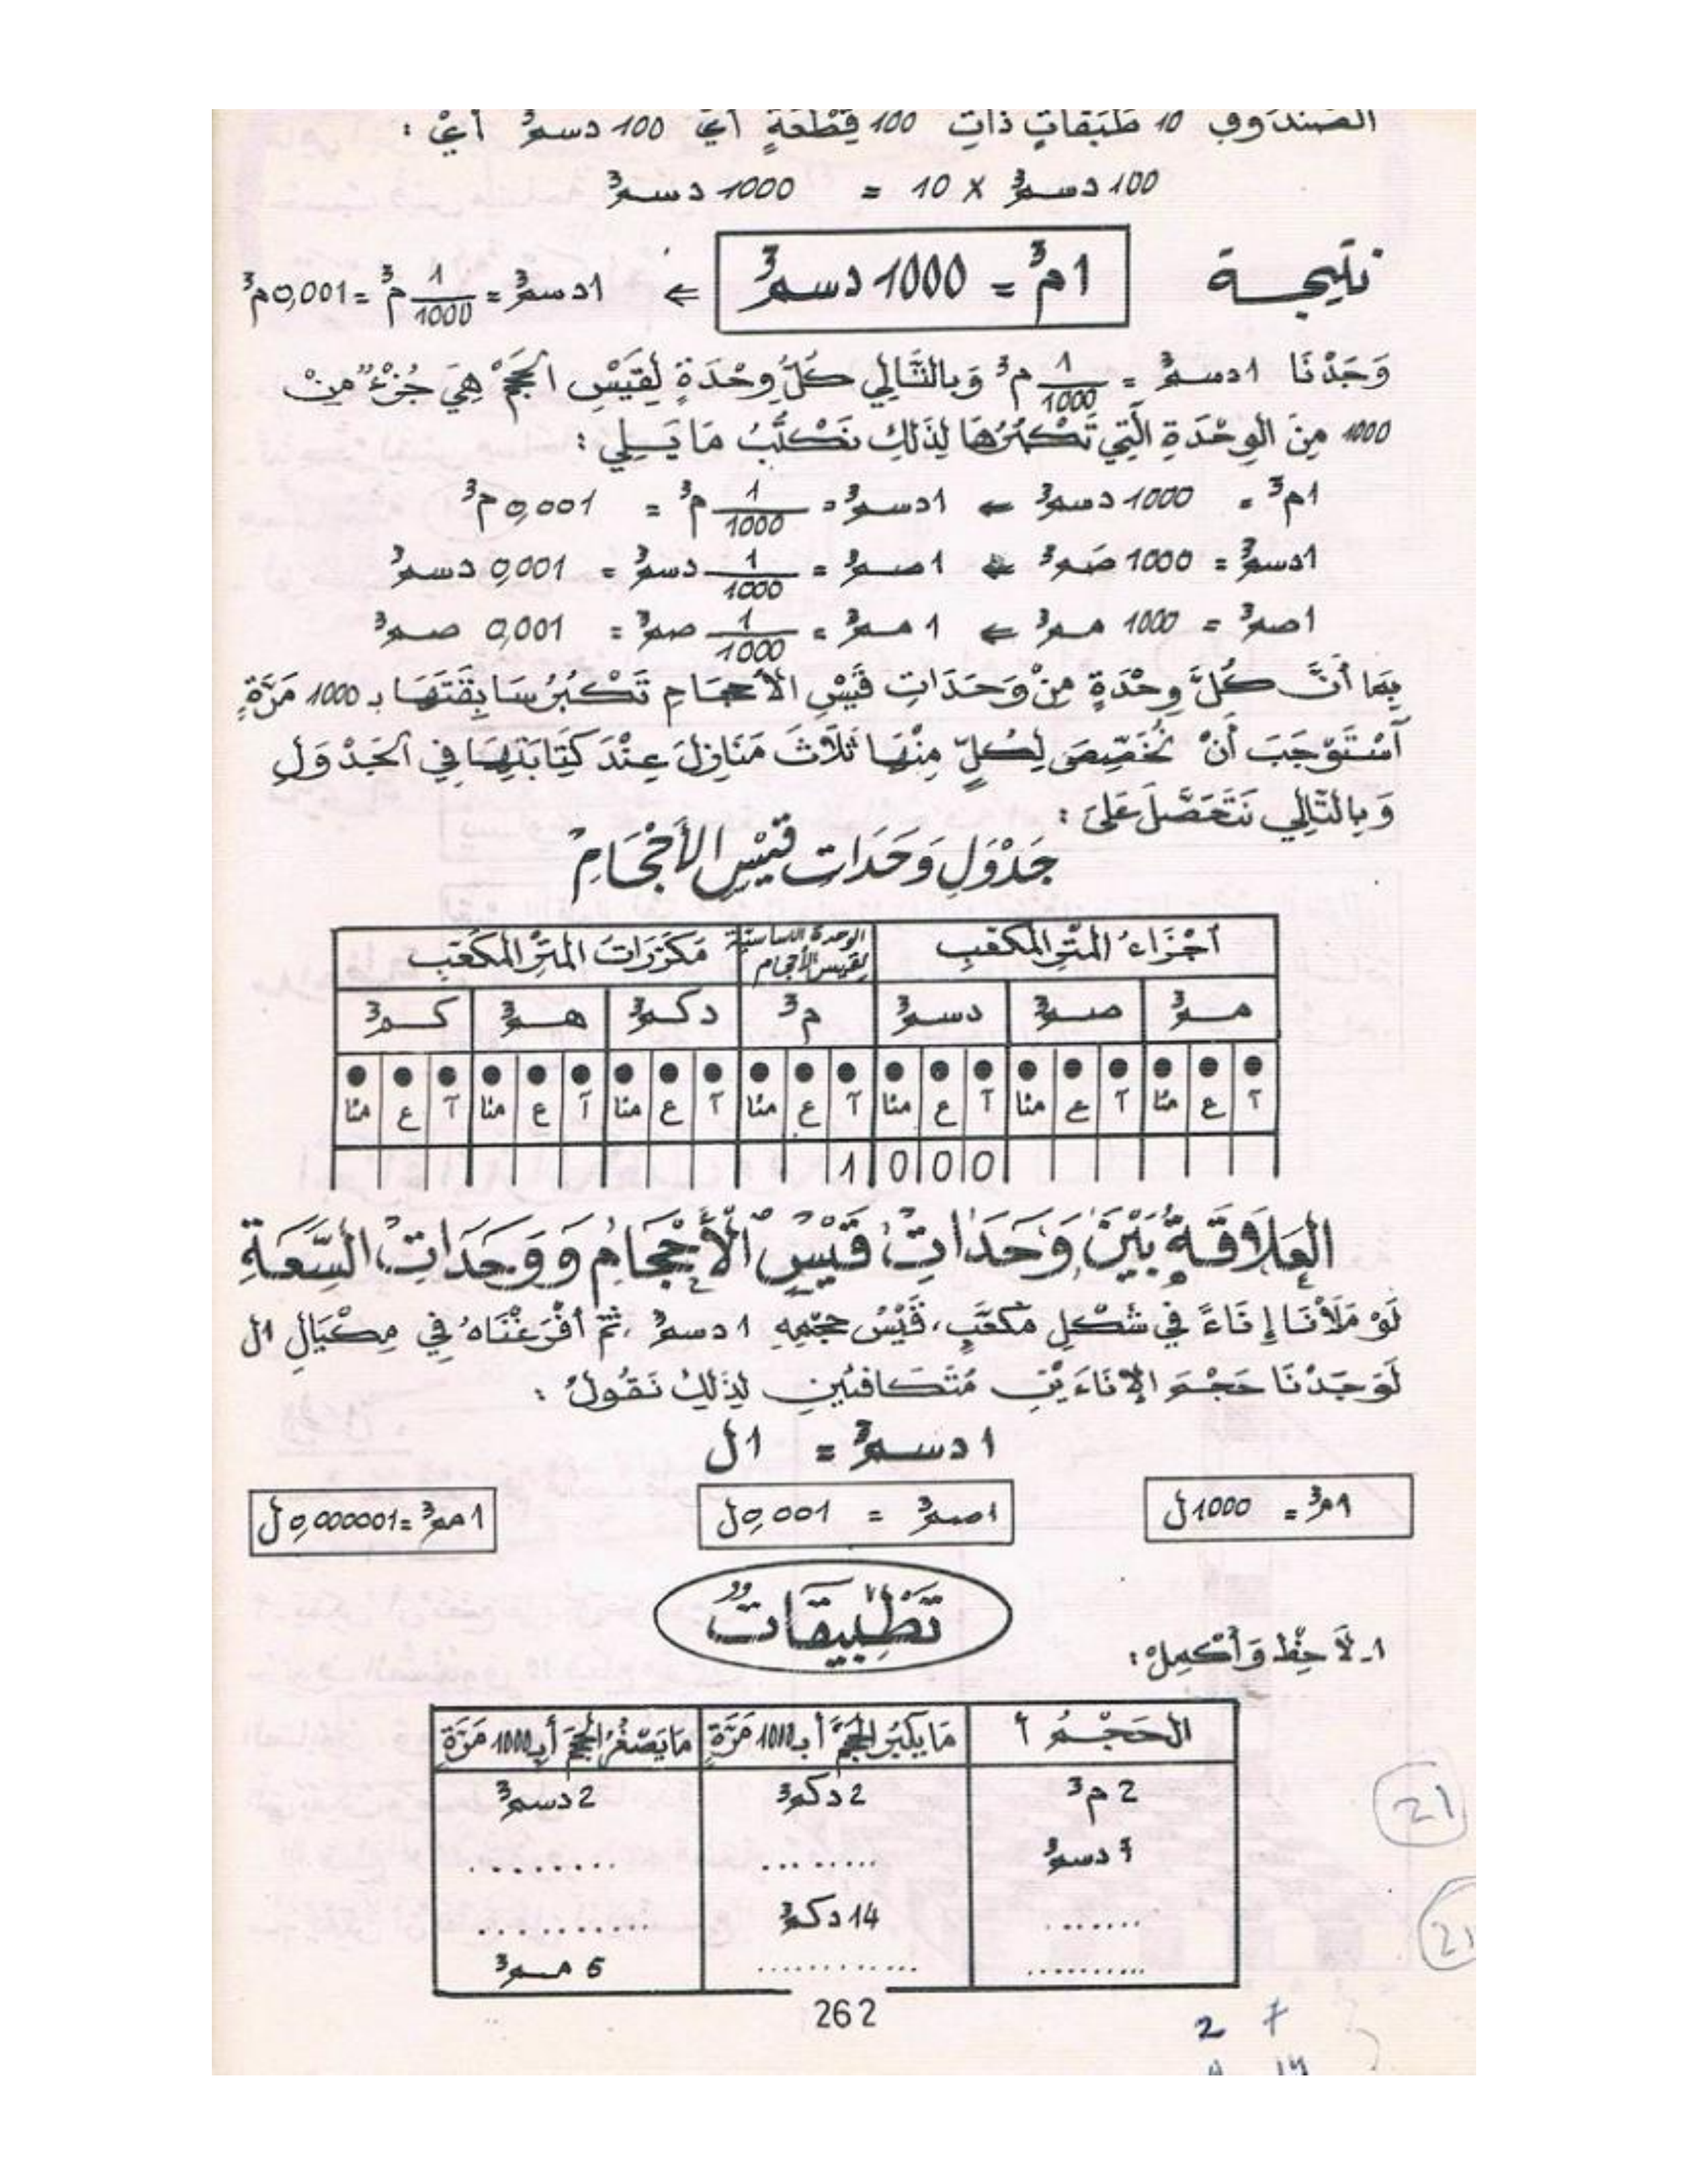 الصندوق 10 طَبَقاتٍ ذاتِ 100 قِطْعَةٍ أيْ 100 دسم³ أيْ :
100 دسم³ × 10 = 1000 دسم³
نتيجة 1م³ = 1000 دسم³ ⇐ 1دسم³ = 1/1000 م³ = 0,001م³
وَجَدْنَا 1دسم³ = 1/1000 م³ وَبِالتَّالِي كُلُّ وِحْدَةٍ لِقَيْسِ الحَجْمِ هِيَ جُزْءٌ مِنْ
1000 مِنَ الوِحْدَةِ الَّتِي تَكْبُرُهَا لِذَلِكَ نَكْتُبُ مَا يَلِي :
1م³ = 1000 دسم³ ⇐ 1دسم³ = 1/1000 م³ = 0,001 م³
1دسم³ = 1000 صم³ ⇐ 1صم³ = 1/1000 دسم³ = 0,001 دسم³
1صم³ = 1000 مم³ ⇐ 1 مم³ = 1/1000 صم³ = 0,001 صم³
بِمَا أَنَّ كُلَّ وِحْدَةٍ مِنْ وَحَدَاتِ قَيْسِ الأَحْجَامِ تَكْبُرُ سَابِقَتَهَا بـ 1000 مَرَّةٍ
اسْتَوْجَبَ أَنْ نُخَصِّصَ لِكُلٍّ مِنْهَا ثَلَاثَ مَنَازِلَ عِنْدَ كِتَابَتِهَا فِي الجَدْوَلِ
وَبِالتَّالِي نَتَحَصَّلُ عَلَى :
جَدْوَلِ وَحَدَات قَيْسِ الأَحْجَامِ
أجْزَاءُ المتْرِ المكَعَّبِ الوحدة الأساسية لقيس الأحجام مكَرَّرَاتُ المتْرِ المكَعَّبِ
مم³ صم³ دسم³ م³ دكم³ هم³ كم³
آ ع مئا آ ع مئا آ ع مئا آ ع مئا آ ع مئا آ ع مئا آ ع مئا
1 0 0 0
العَلاَقَةُ بَيْنَ وَحَدَاتِ قَيْسِ الأَحْجَامِ وَوَحَدَاتِ السَّعَةِ
لَوْ مَلَأْنَا إِنَاءً فِي شَكْلِ مُكَعَّبٍ، قَيْسُ حَجْمِهِ 1 دسم³ ، ثمّ أَفْرَغْنَاهُ فِي مِكْيَالِ 1ل
لَوَجَدْنَا حَجْمَ الإِنَاءَيْنِ مُتَكَافِئَيْنِ لِذَلِكَ نَقُولُ :
1 دسم³ = 1ل
1م³ = 1000ل 1صم³ = 0,001ل 1مم³ = 0,000001ل
تَطْبِيقَاتٌ
1ـ لاَحِظْ وَأَكْمِلْ :
الحَجْمُ أ مَا يَكْبُرُ الحَجْمَ أ بـ 1000 مَرَّةٍ مَا يَصْغُرُ الحَجْمَ أ بـ 1000 مَرَّةٍ
2 م³ 2 دكم³ 2 دسم³
7 دسم³ ........ ........
....... 14 دكم³ ..........
......... ............ 6 مم³
21
21
262
2 7
14